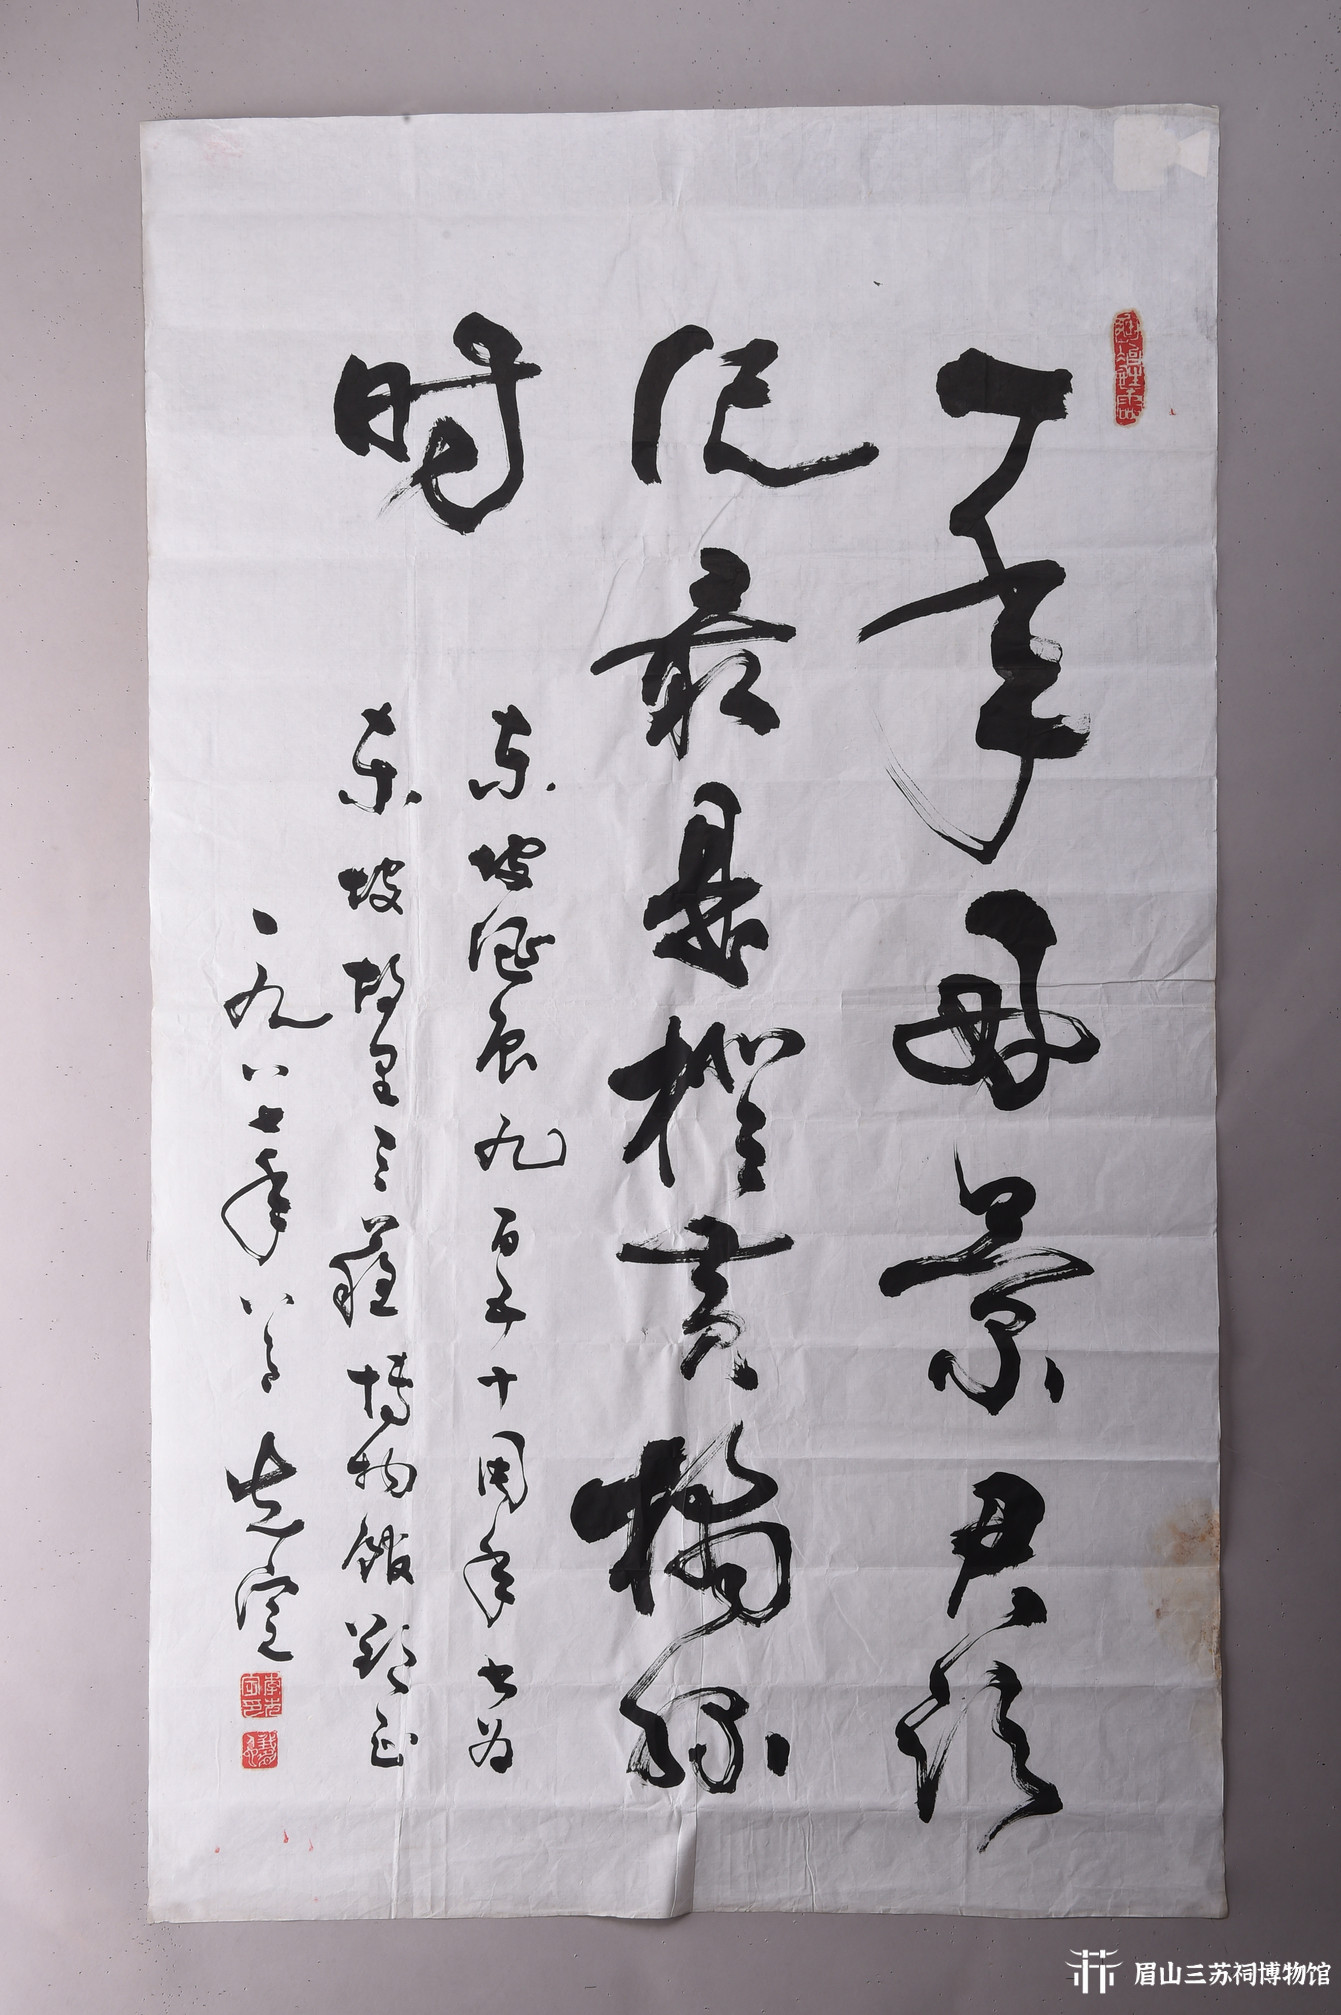 一年好景君须
记最是橙黄橘绿
时
东坡诞辰九百五十周年书为
东坡故里三蘇博物館正
一九八七年八月志
眉山三苏祠博物馆